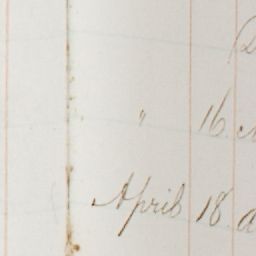 " 16
April 18